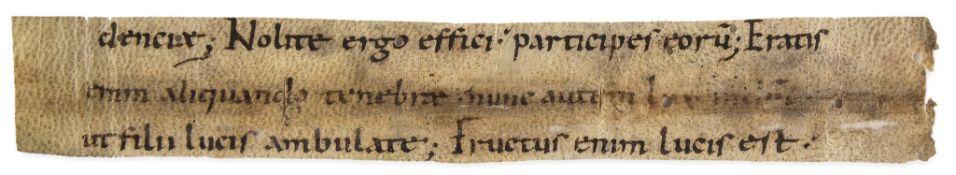 denciæ; Nolite ergo effici· participes eorū; Eratis
enim aliquando tenebræ nunc autem lux in
ut filii lucis ambulate; Fructus enim lucis est·